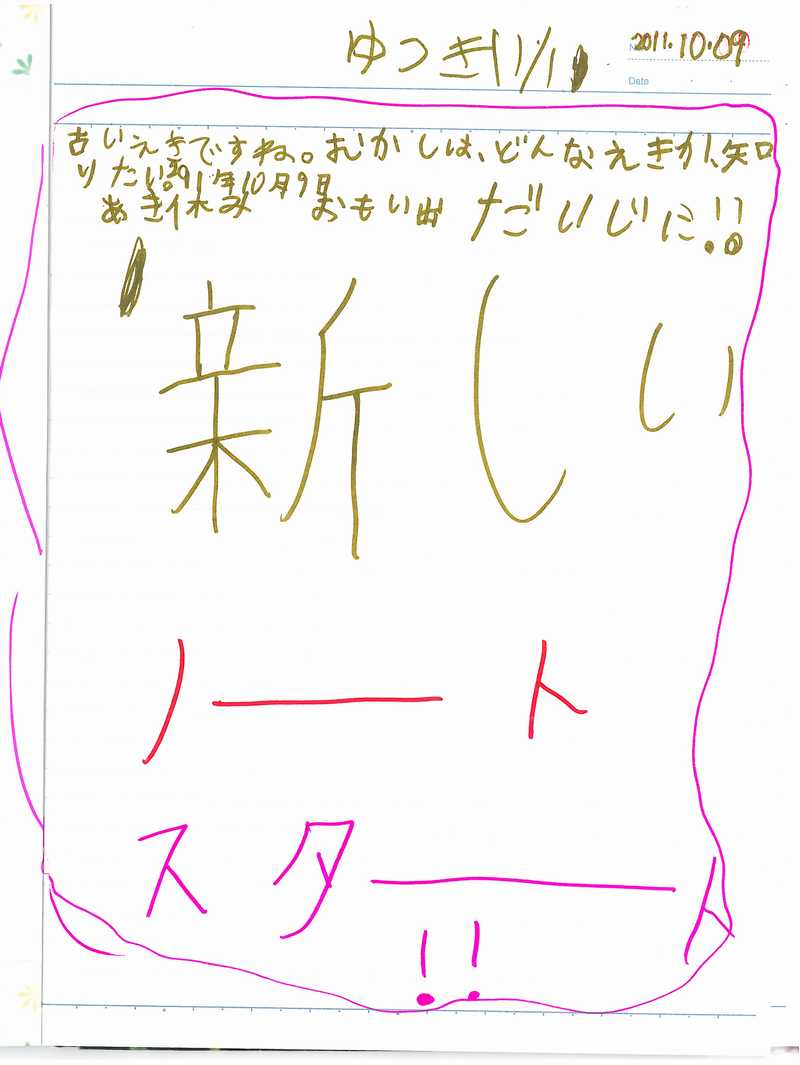 2011.10.09
ゆつき
Date
古いえきですね。むかしは、どんなえきか、知
りたい。11年10月9日
あき休み おもい出 だいじに!!
新しい
ノート
スタート
!!